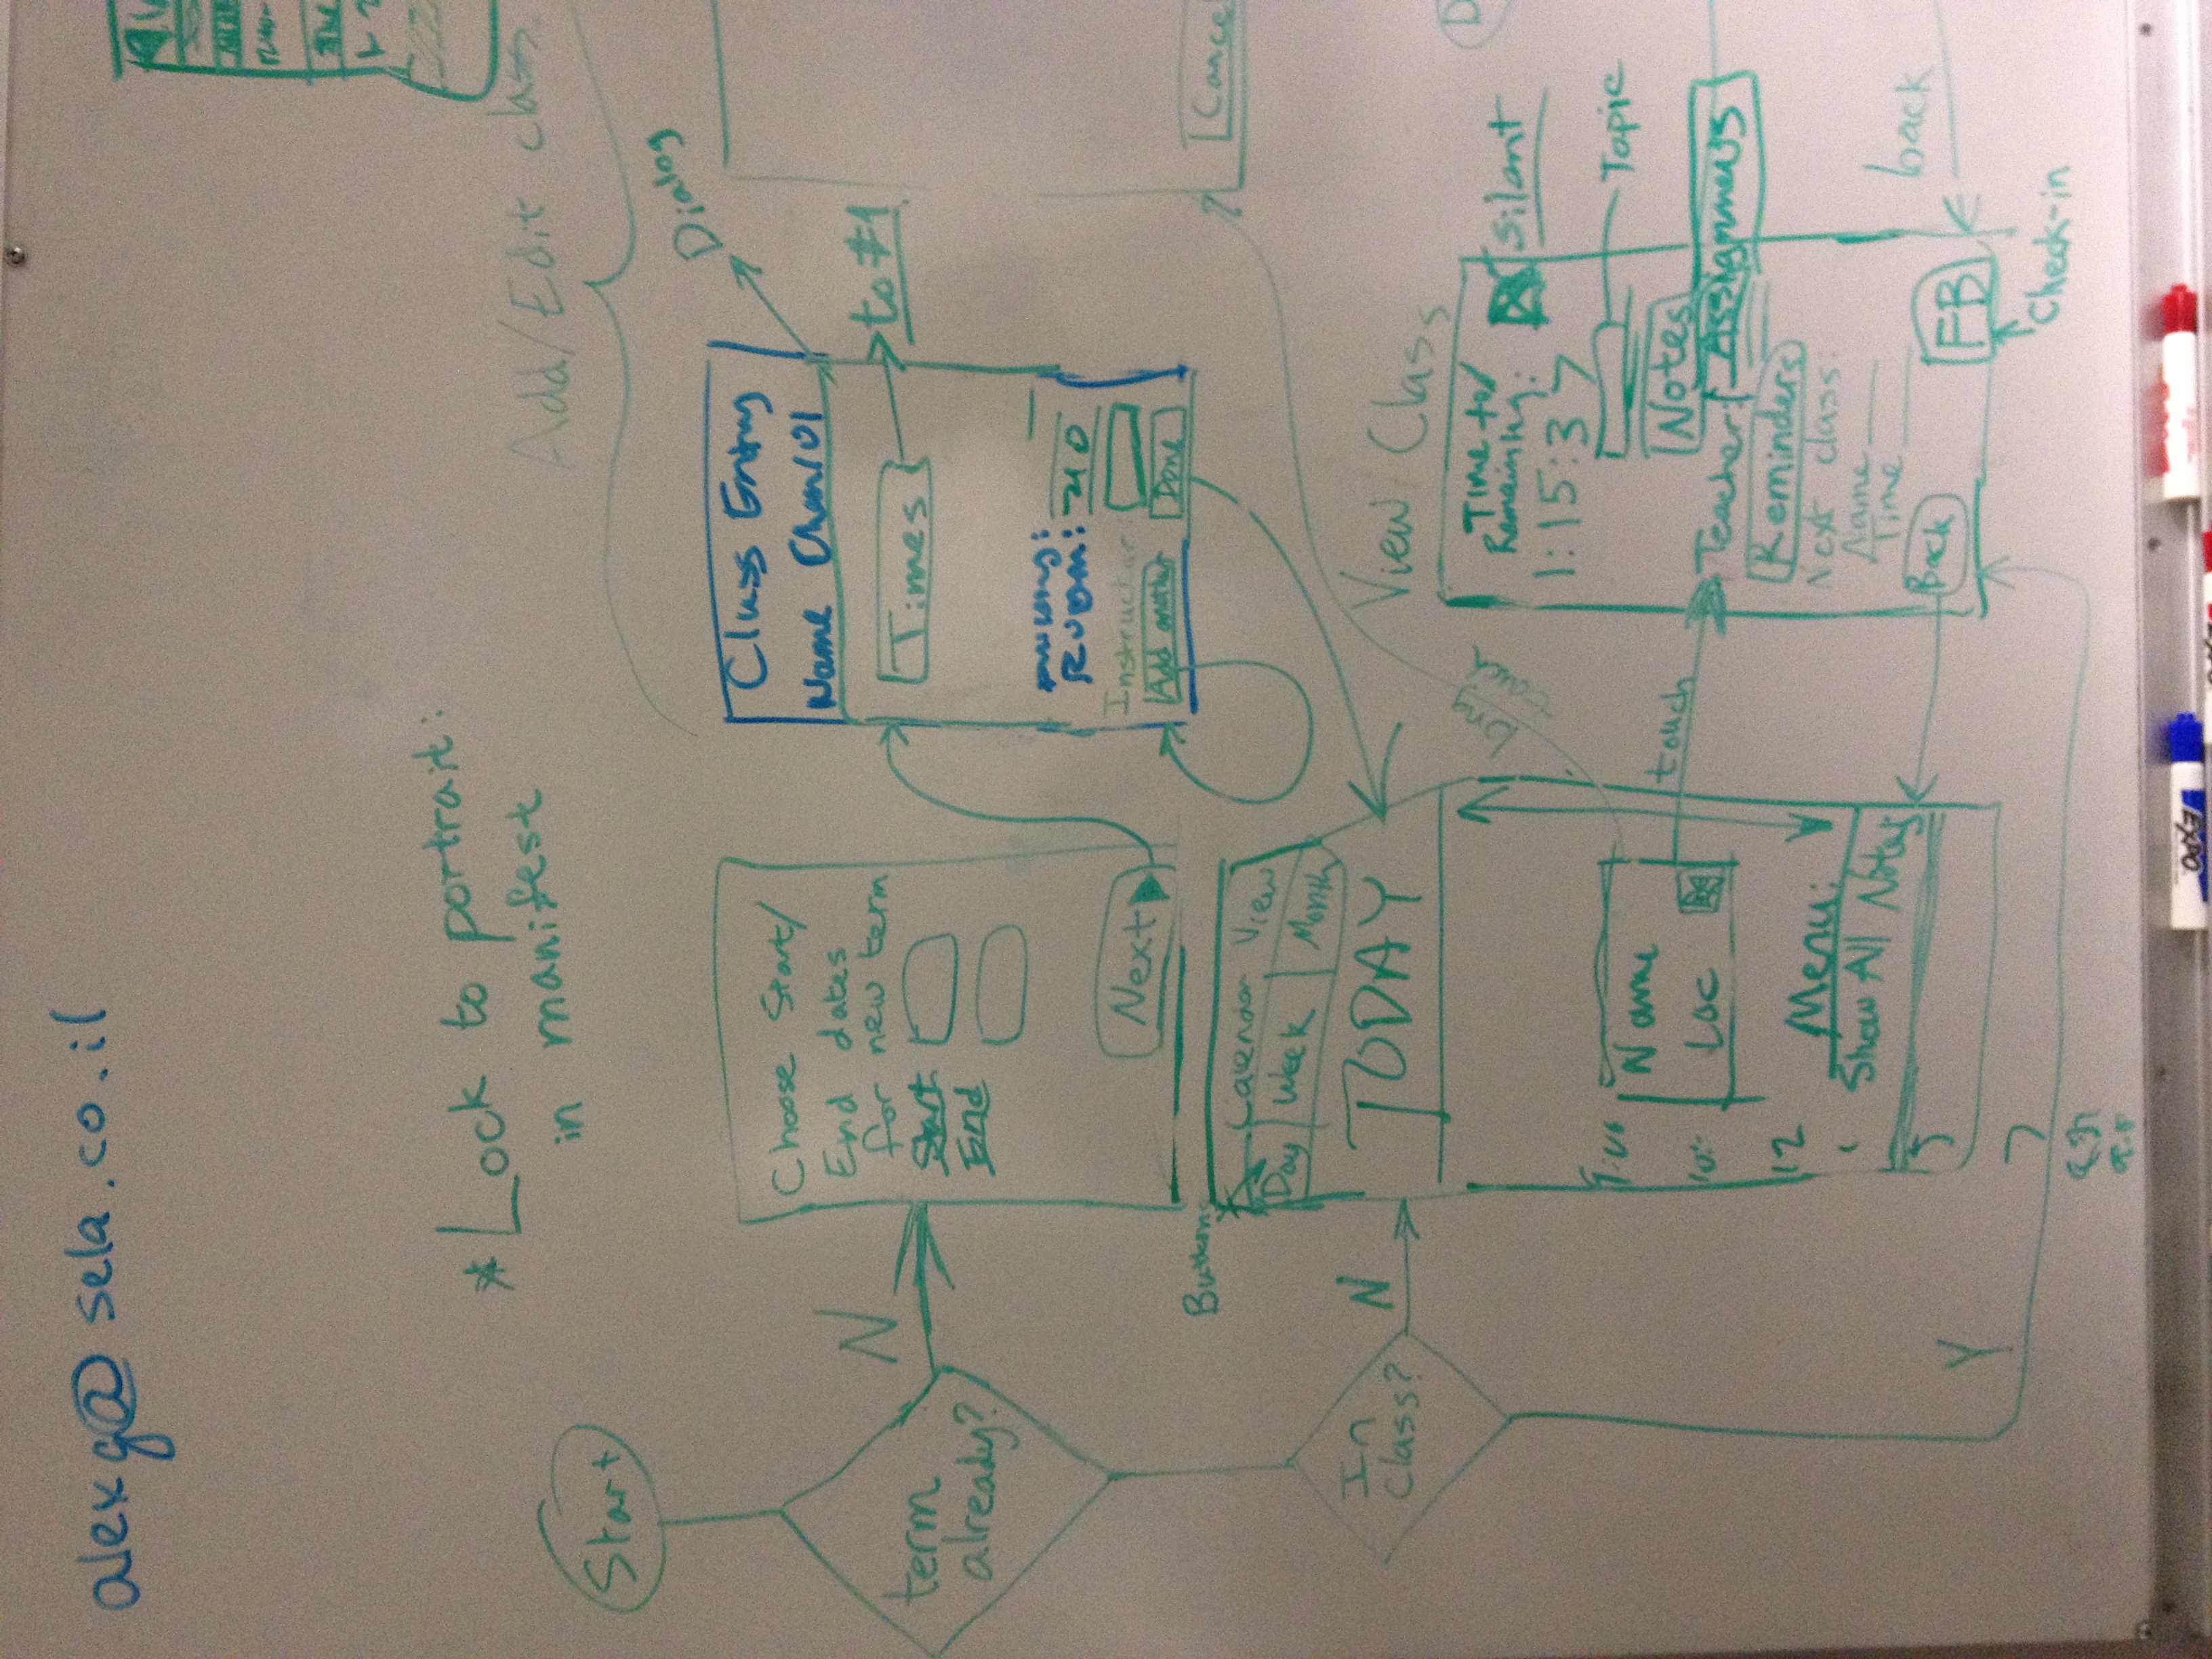 alexg@sela.co.il
*Lock to portrait:
in manifest
Add/Edit class
Start
Dialog
term
already?
N
Choose Start/
End dates
for new term
Start
End
Next
Class Entry
Name Chem101
Times
to #1
Room: 210
Instructor:
Add another
Done
Cancel
Buttons
Calendar View
Day
Week
Month
TODAY
In
Class?
N
long
touch
Name
Loc
touch
12
Menu:
Show All Notes
View Class
Time to/
Remaining:
1:15:37
silent
Topic
Notes
Teacher:
Assignments
Reminders
Next class:
Name
Time
Back
FB
back
Check-in
Y
7
EXPO